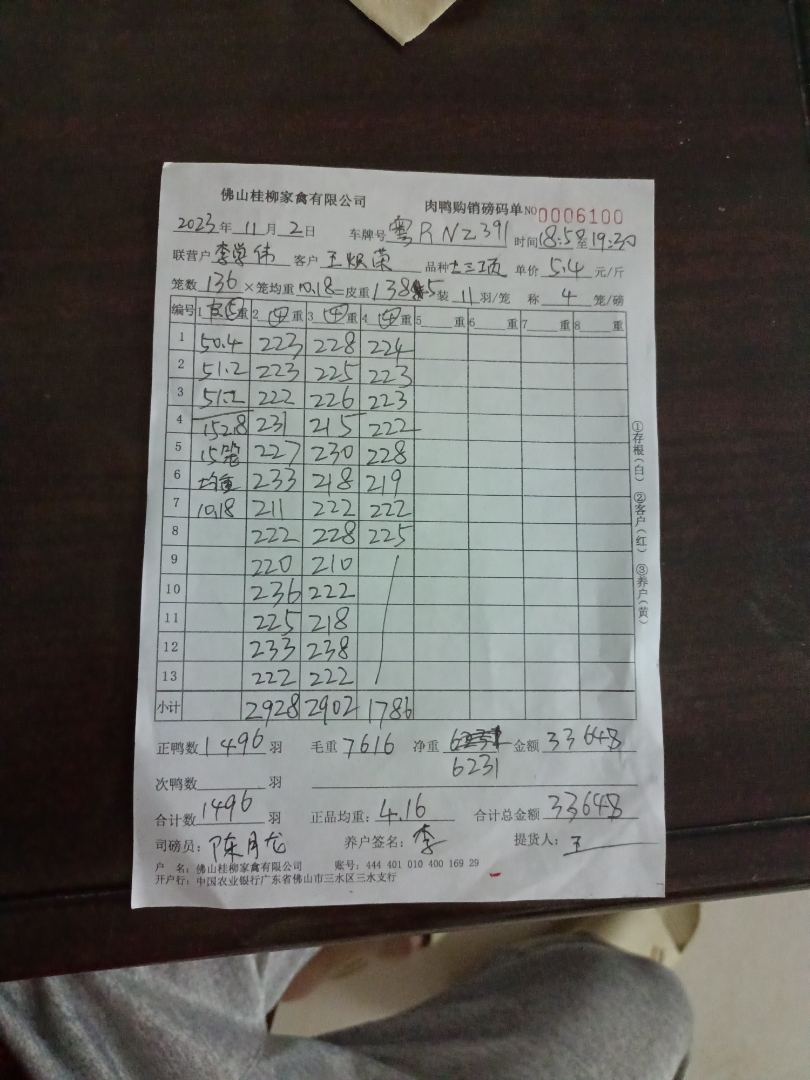 佛山桂柳家禽有限公司 肉鸭购销磅码单 NO 0006100
2023年 11月 2日 车牌号 粤RNZ391 时间 18:58至19:30
联营户 李学伟 客户 王炽荣 品种 土三顶 单价 5.4 元/斤
笼数 136 ×笼均重 10.18 =皮重 1385 装 11 羽/笼 称 4 笼/磅
编号 1 皮重 2 毛重 3 毛重 4 毛重 5 重 6 重 7 重 8 重
1 50.4 223 228 224
2 51.2 223 225 223
3 51.2 222 226 223
4 152.8 231 215 222
5 15笼 227 230 228
6 均重 233 218 219
7 10.18 211 222 222
8 222 228 225
9 220 210
10 236 222
11 225 218
12 233 238
13 222 222
小计 2928 2902 1786
正鸭数 1496 羽 毛重 7616 净重 6231 金额 33648
次鸭数 羽
合计数 1496 羽 正品均重: 4.16 合计总金额 33648
司磅员: 陈月龙 养户签名: 李 提货人: 王
户 名: 佛山桂柳家禽有限公司 账号: 444 401 010 400 169 29
开户行: 中国农业银行广东省佛山市三水区三水支行
①存根(白) ②客户(红) ③养户(黄)